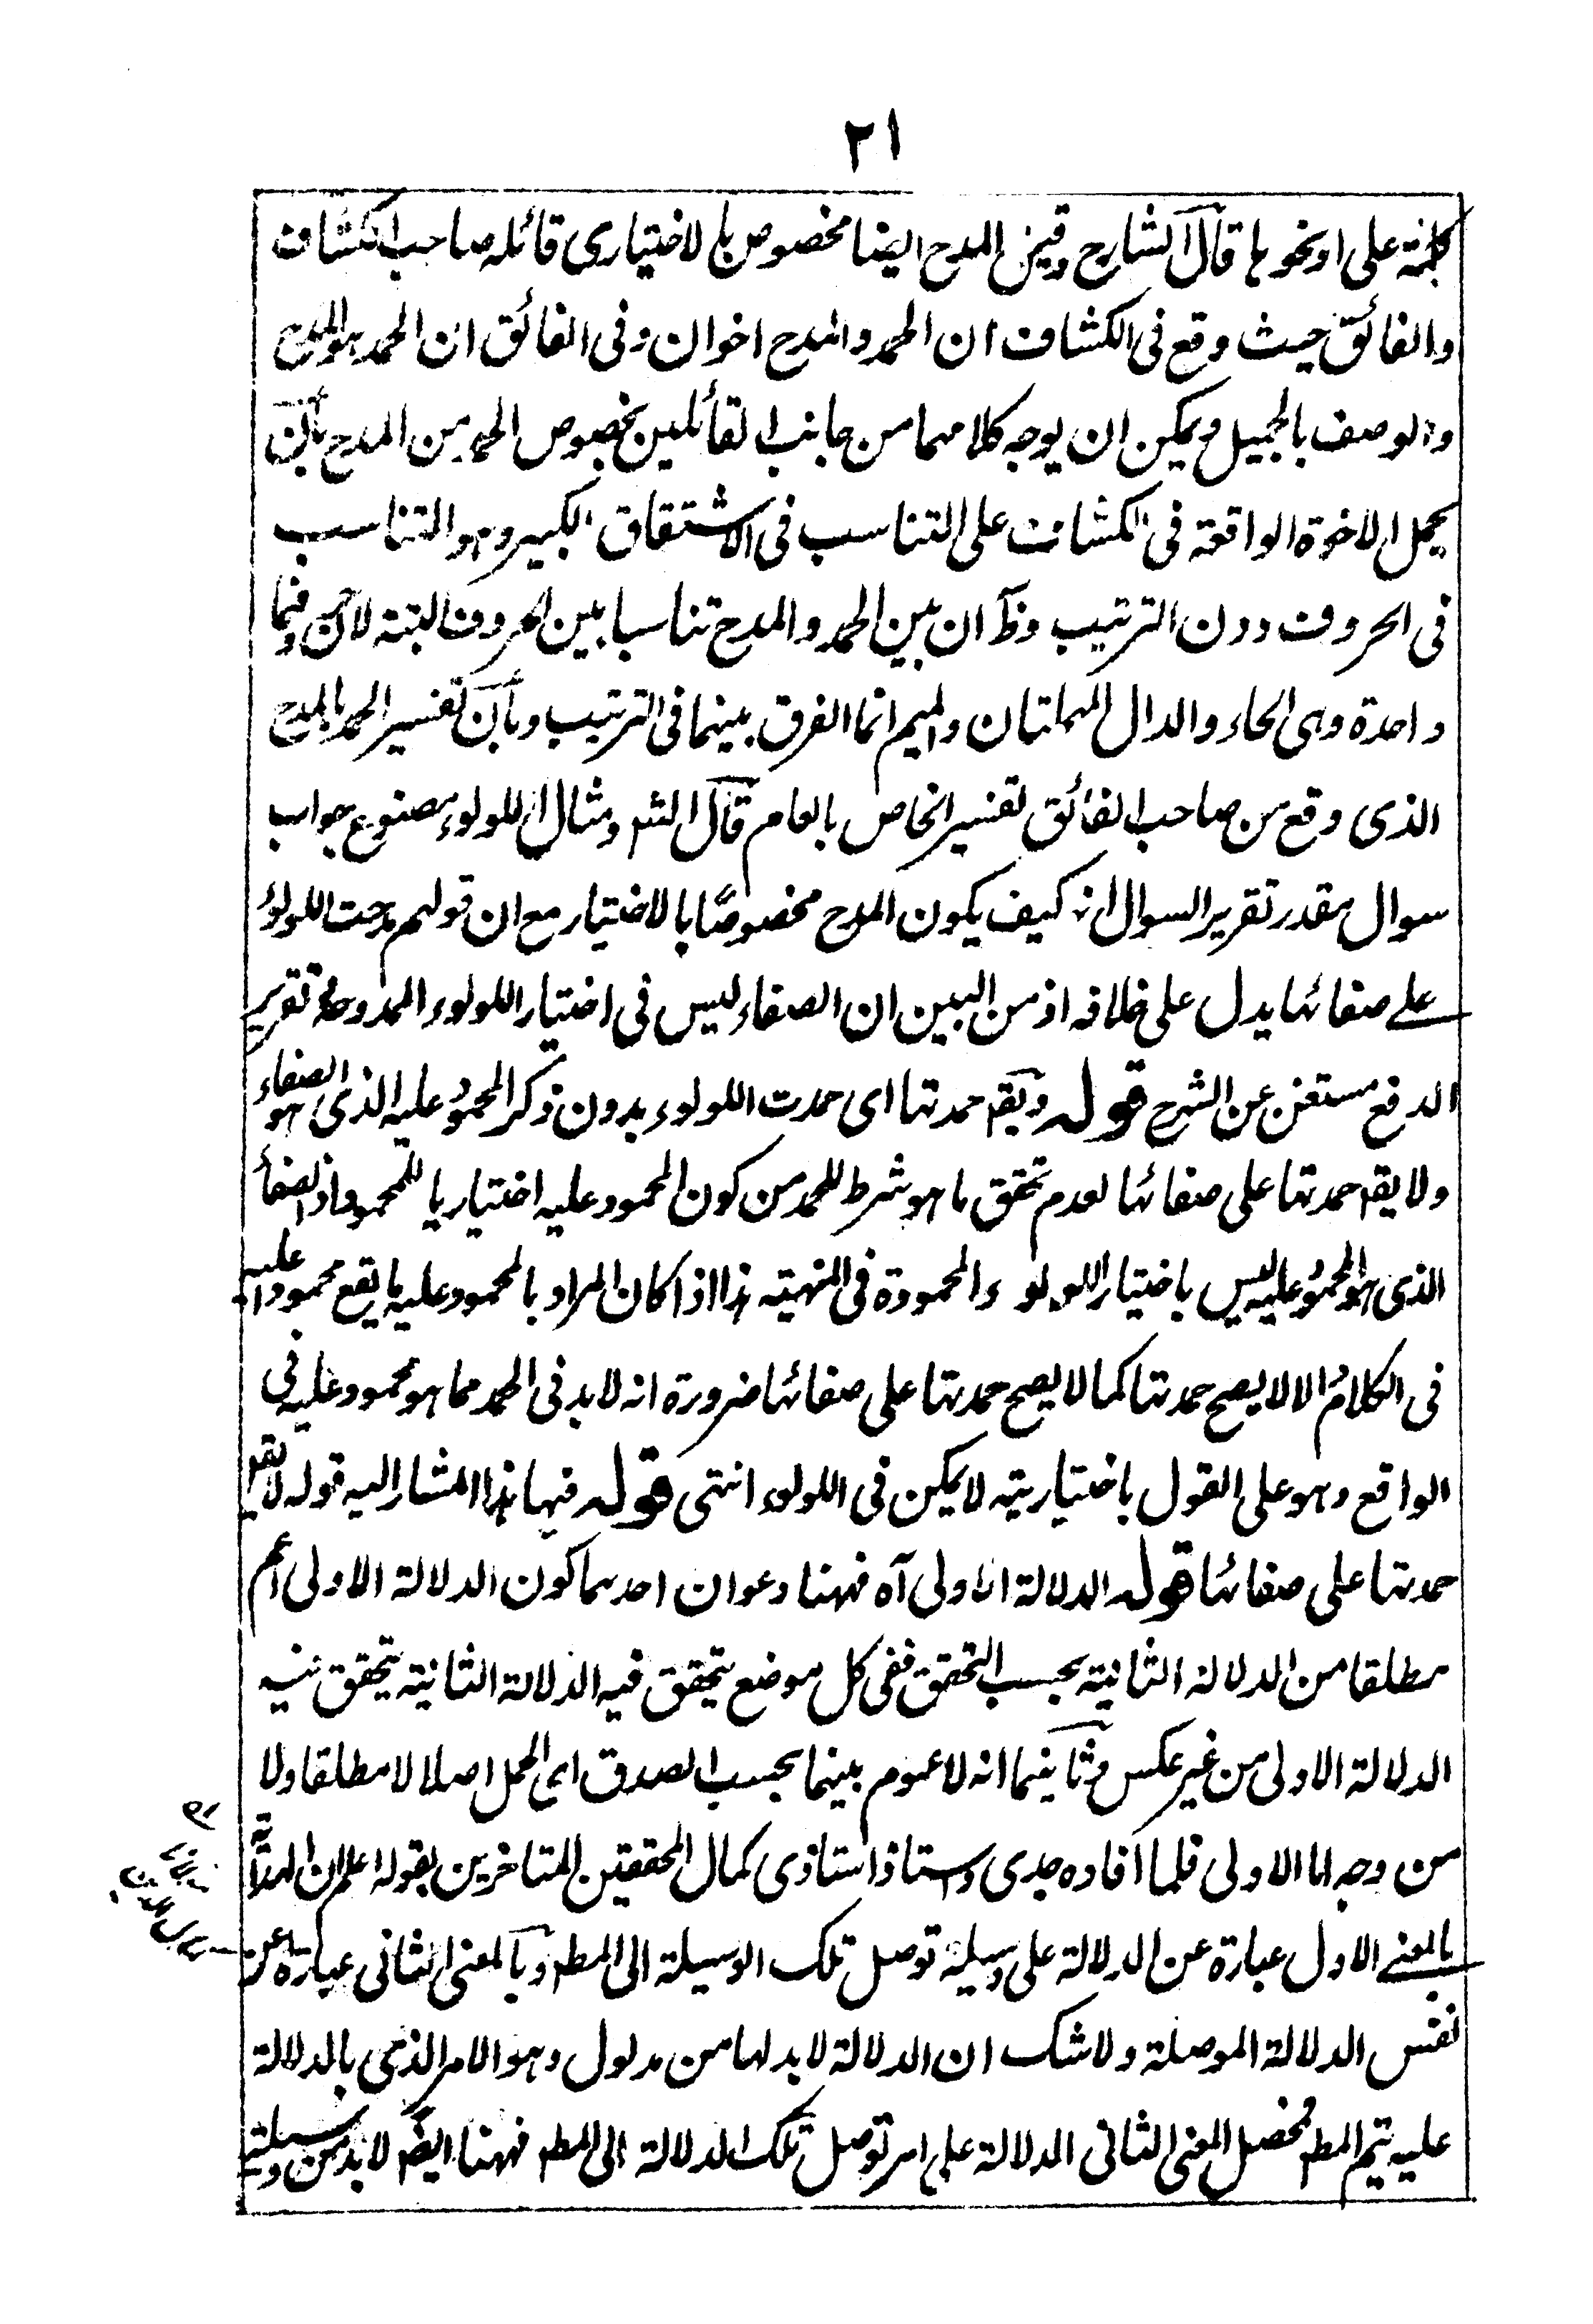 ٢١
كلمة على او نحوها قال الشارح وقيل المدح ايضا مخصوص بالاختيارى قائله صاحب الكشاف
والفائق حيث وقع فى الكشاف ان الحمد والمدح اخوان وفى الفائق ان الحمد هو المدح
والوصف بالجميل ويمكن ان يوجه كلامهما من جانب القائلين بخصوص الحمد من المدح بان
يحمل الاخوة الواقعة فى الكشاف على التناسب فى الاشتقاق الكبير وهو التناسب
فى الحروف دون الترتيب وظ ان بين الحمد والمدح تناسبا بين الحروف البتة لان حروفهما
واحدة وهى الحاء والدال المهملتان والميم انما الفرق بينهما فى الترتيب وبان تفسير الحمد بالمدح
الذى وقع من صاحب الفائق تفسير الخاص بالعام قال الشم ومثال اللولوء مصنوع جواب
سوال مقدر تقرير السوال انه كيف يكون المدح مخصوصًا بالاختيار مع ان قولهم مدحت اللولؤ
على صفائها يدل على خلافه اذ من البين ان الصفاء ليس فى اختيار اللولوء الممدوحة تقرير
الدفع مستغن عن الشرح قوله ويقم حمدتها اى حمدت اللولوء بدون ذكر المحمود عليه الذى هو الصفاء
ولا يقم حمدتها على صفائها لعدم تحقق ما هو شرط للحمد من كون المحمود عليه اختياريا للمحمود اذ الصفاء
الذى هو المحمود عليه ليس باختيار اللولوء المحمودة فى المنهية هذا اذا كان المراد بالمحمود عليه ما يقع محمودا عليه
فى الكلام والا لا يصح حمدتها كما لا يصح حمدتها على صفائها ضرورة انه لا بد فى الحمد مما هو محمود عليه فى
الواقع وهو على القول باختياريته لا يمكن فى اللولوء انتهى قوله فيها هذا المشار اليه قوله لا يقم
حمدتها على صفائها قوله الدلالة الاولى آه فههنا دعوان احدهما كون الدلالة الاولى اعم
مطلقا من الدلالة الثانية بحسب التحقق ففى كل موضع يتحقق فيه الدلالة الثانية يتحقق فيه
الدلالة الاولى من غير عكس وثانيهما انه لا عموم بينهما بحسب الصدق اى الحمل اصلا لا مطلقا ولا
من وجه اما الاولى فلما افاده جدى واستاذ استاذى كمال المحققين المتاخرين بقوله اعلم ان الهداية
بالمعنى الاول عبارة عن الدلالة على وسيلة توصل تلك الوسيلة الى المطم وبالمعنى الثانى عبارة عن
نفس الدلالة الموصلة ولا شك ان الدلالة لا بد لها من مدلول وهو الامر الذى بالدلالة
عليه يتم المطم فمحصل المعنى الثانى الدلالة على امر توصل تلك الدلالة الى المطم فههنا ايضم لا بد من وسيلة